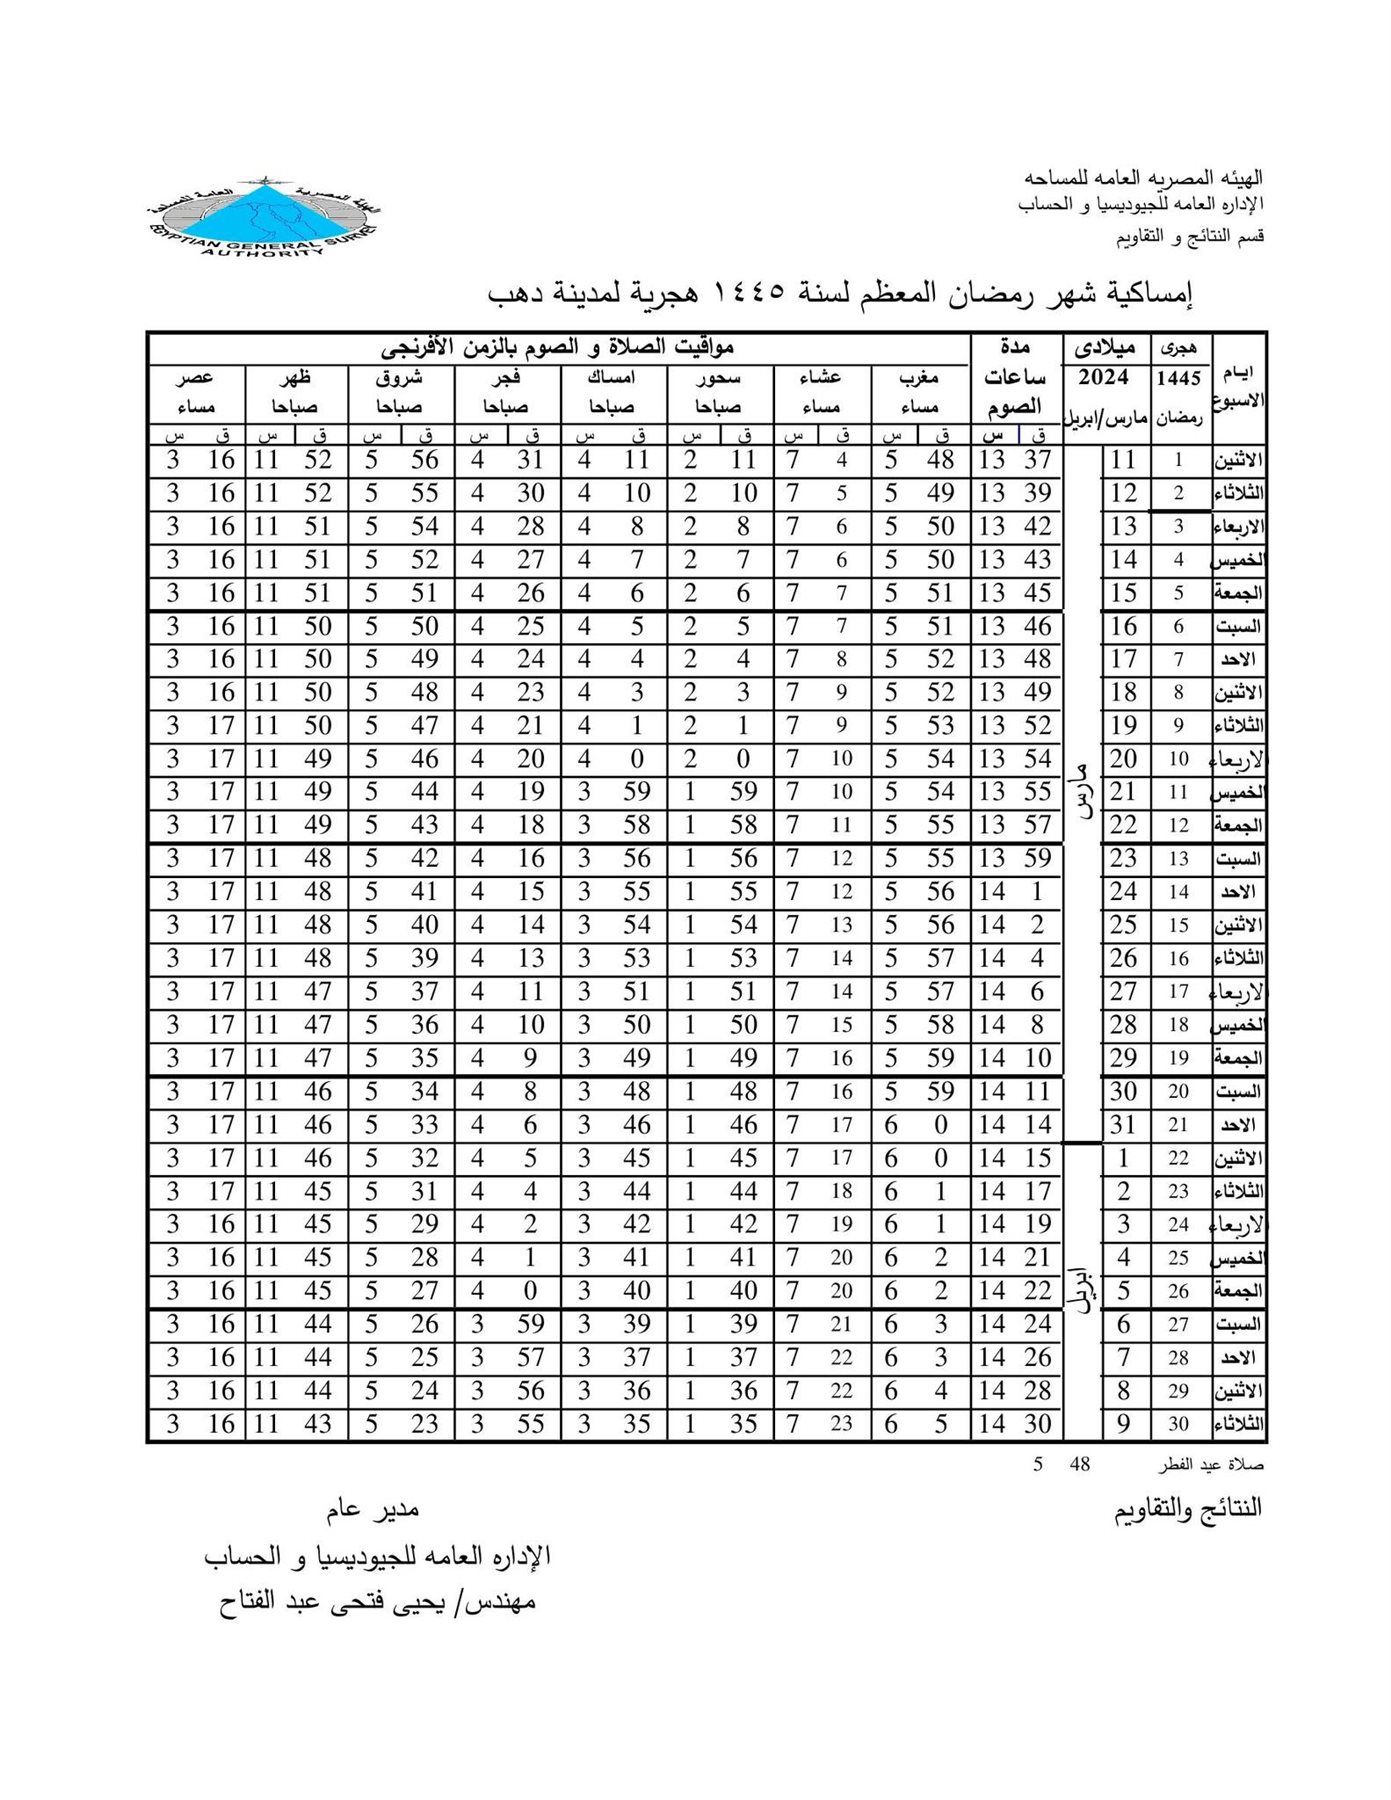 الهيئه المصريه العامه للمساحه
الإداره العامه للجيوديسيا و الحساب
قسم النتائج و التقاويم
الهيئة المصرية العامة للمساحة
EGYPTIAN GENERAL SURVEY
AUTHORITY
إمساكية شهر رمضان المعظم لسنة ١٤٤٥ هجرية لمدينة دهب
ايام الاسبوع هجرى ميلادى مدة مواقيت الصلاة و الصوم بالزمن الأفرنجى
1445 2024 ساعات مغرب عشاء سحور امساك فجر شروق ظهر عصر
رمضان مارس/ابريل الصوم مساء مساء صباحا صباحا صباحا صباحا صباحا مساء
ق س ق س ق س ق س ق س ق س ق س ق س ق س
الاثنين 1 11 37 13 48 5 4 7 11 2 11 4 31 4 56 5 52 11 16 3
الثلاثاء 2 12 39 13 49 5 5 7 10 2 10 4 30 4 55 5 52 11 16 3
الاربعاء 3 13 42 13 50 5 6 7 8 2 8 4 28 4 54 5 51 11 16 3
الخميس 4 14 43 13 50 5 6 7 7 2 7 4 27 4 52 5 51 11 16 3
الجمعة 5 15 45 13 51 5 7 7 6 2 6 4 26 4 51 5 51 11 16 3
السبت 6 16 46 13 51 5 7 7 5 2 5 4 25 4 50 5 50 11 16 3
الاحد 7 17 48 13 52 5 8 7 4 2 4 4 24 4 49 5 50 11 16 3
الاثنين 8 18 49 13 52 5 9 7 3 2 3 4 23 4 48 5 50 11 16 3
الثلاثاء 9 19 52 13 53 5 9 7 1 2 1 4 21 4 47 5 50 11 17 3
لاربعاء 10 20 54 13 54 5 10 7 0 2 0 4 20 4 46 5 49 11 17 3
مارس
الخميس 11 21 55 13 54 5 10 7 59 1 59 3 19 4 44 5 49 11 17 3
الجمعة 12 22 57 13 55 5 11 7 58 1 58 3 18 4 43 5 49 11 17 3
السبت 13 23 59 13 55 5 12 7 56 1 56 3 16 4 42 5 48 11 17 3
الاحد 14 24 1 14 56 5 12 7 55 1 55 3 15 4 41 5 48 11 17 3
الاثنين 15 25 2 14 56 5 13 7 54 1 54 3 14 4 40 5 48 11 17 3
الثلاثاء 16 26 4 14 57 5 14 7 53 1 53 3 13 4 39 5 48 11 17 3
لاربعاء 17 27 6 14 57 5 14 7 51 1 51 3 11 4 37 5 47 11 17 3
الخميس 18 28 8 14 58 5 15 7 50 1 50 3 10 4 36 5 47 11 17 3
الجمعة 19 29 10 14 59 5 16 7 49 1 49 3 9 4 35 5 47 11 17 3
السبت 20 30 11 14 59 5 16 7 48 1 48 3 8 4 34 5 46 11 17 3
الاحد 21 31 14 14 0 6 17 7 46 1 46 3 6 4 33 5 46 11 17 3
الاثنين 22 1 15 14 0 6 17 7 45 1 45 3 5 4 32 5 46 11 17 3
الثلاثاء 23 2 17 14 1 6 18 7 44 1 44 3 4 4 31 5 45 11 17 3
لاربعاء 24 3 19 14 1 6 19 7 42 1 42 3 2 4 29 5 45 11 16 3
الخميس 25 4 21 14 2 6 20 7 41 1 41 3 1 4 28 5 45 11 16 3
ابريل
الجمعة 26 5 22 14 2 6 20 7 40 1 40 3 0 4 27 5 45 11 16 3
السبت 27 6 24 14 3 6 21 7 39 1 39 3 59 3 26 5 44 11 16 3
الاحد 28 7 26 14 3 6 22 7 37 1 37 3 57 3 25 5 44 11 16 3
الاثنين 29 8 28 14 4 6 22 7 36 1 36 3 56 3 24 5 44 11 16 3
الثلاثاء 30 9 30 14 5 6 23 7 35 1 35 3 55 3 23 5 43 11 16 3
صلاة عيد الفطر 48 5
النتائج والتقاويم
مدير عام
الإداره العامه للجيوديسيا و الحساب
مهندس/ يحيى فتحى عبد الفتاح